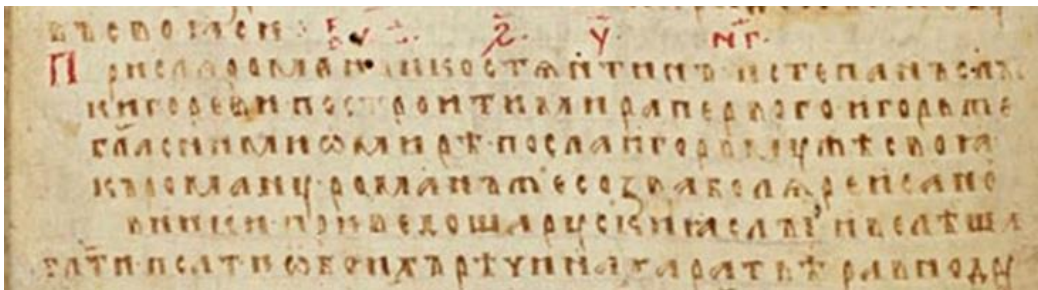 въ своꙗси
҂ѕ҃ · у҃ · нг҃ ·
Присла романъ и костѧнтинъ · и степанъ слы
к игореви · построити мира первого · игорь же
гл҃а с ними ѡ мирѣ · посла игорь мужѣ своꙗ
къ роману · романъ же созва болѧре и сано
вники · приведоша рускиꙗ слы и велѣша
гл҃ти · псати ѡбоихъ рѣчи на харатьѣ равно дру